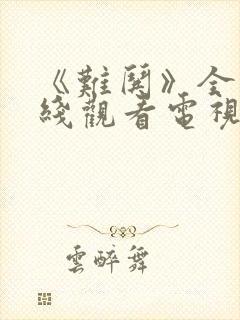 《難鬨》全
綫觀看電視
雲醉舞